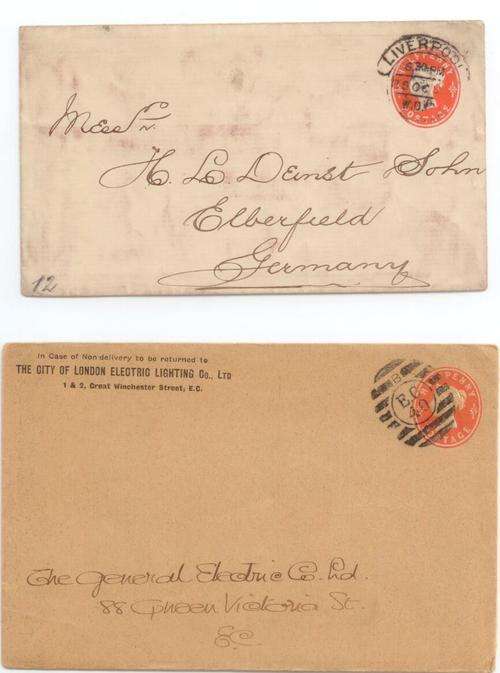 LIVERPOOL
5.30 PM
POSTAGE
Mess
H. L. Deinst Sohn
Elberfield
Germany
12
In Case of Non delivery to be returned to
THE CITY OF LONDON ELECTRIC LIGHTING Co., LTD
1 & 2, Great Winchester Street, E.C.
E.C
49
PENNY
POSTAGE
The General Electric Co. Ltd.
88 Queen Victoria St.
EC